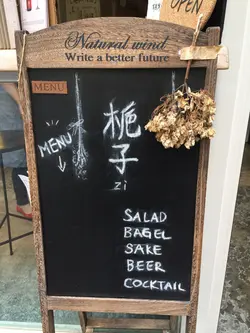 OPEN
Natural wind
Write a better future
MENU
MENU
栀
子
zi
SALAD
BAGEL
SAKE
BEER
COCKTAIL